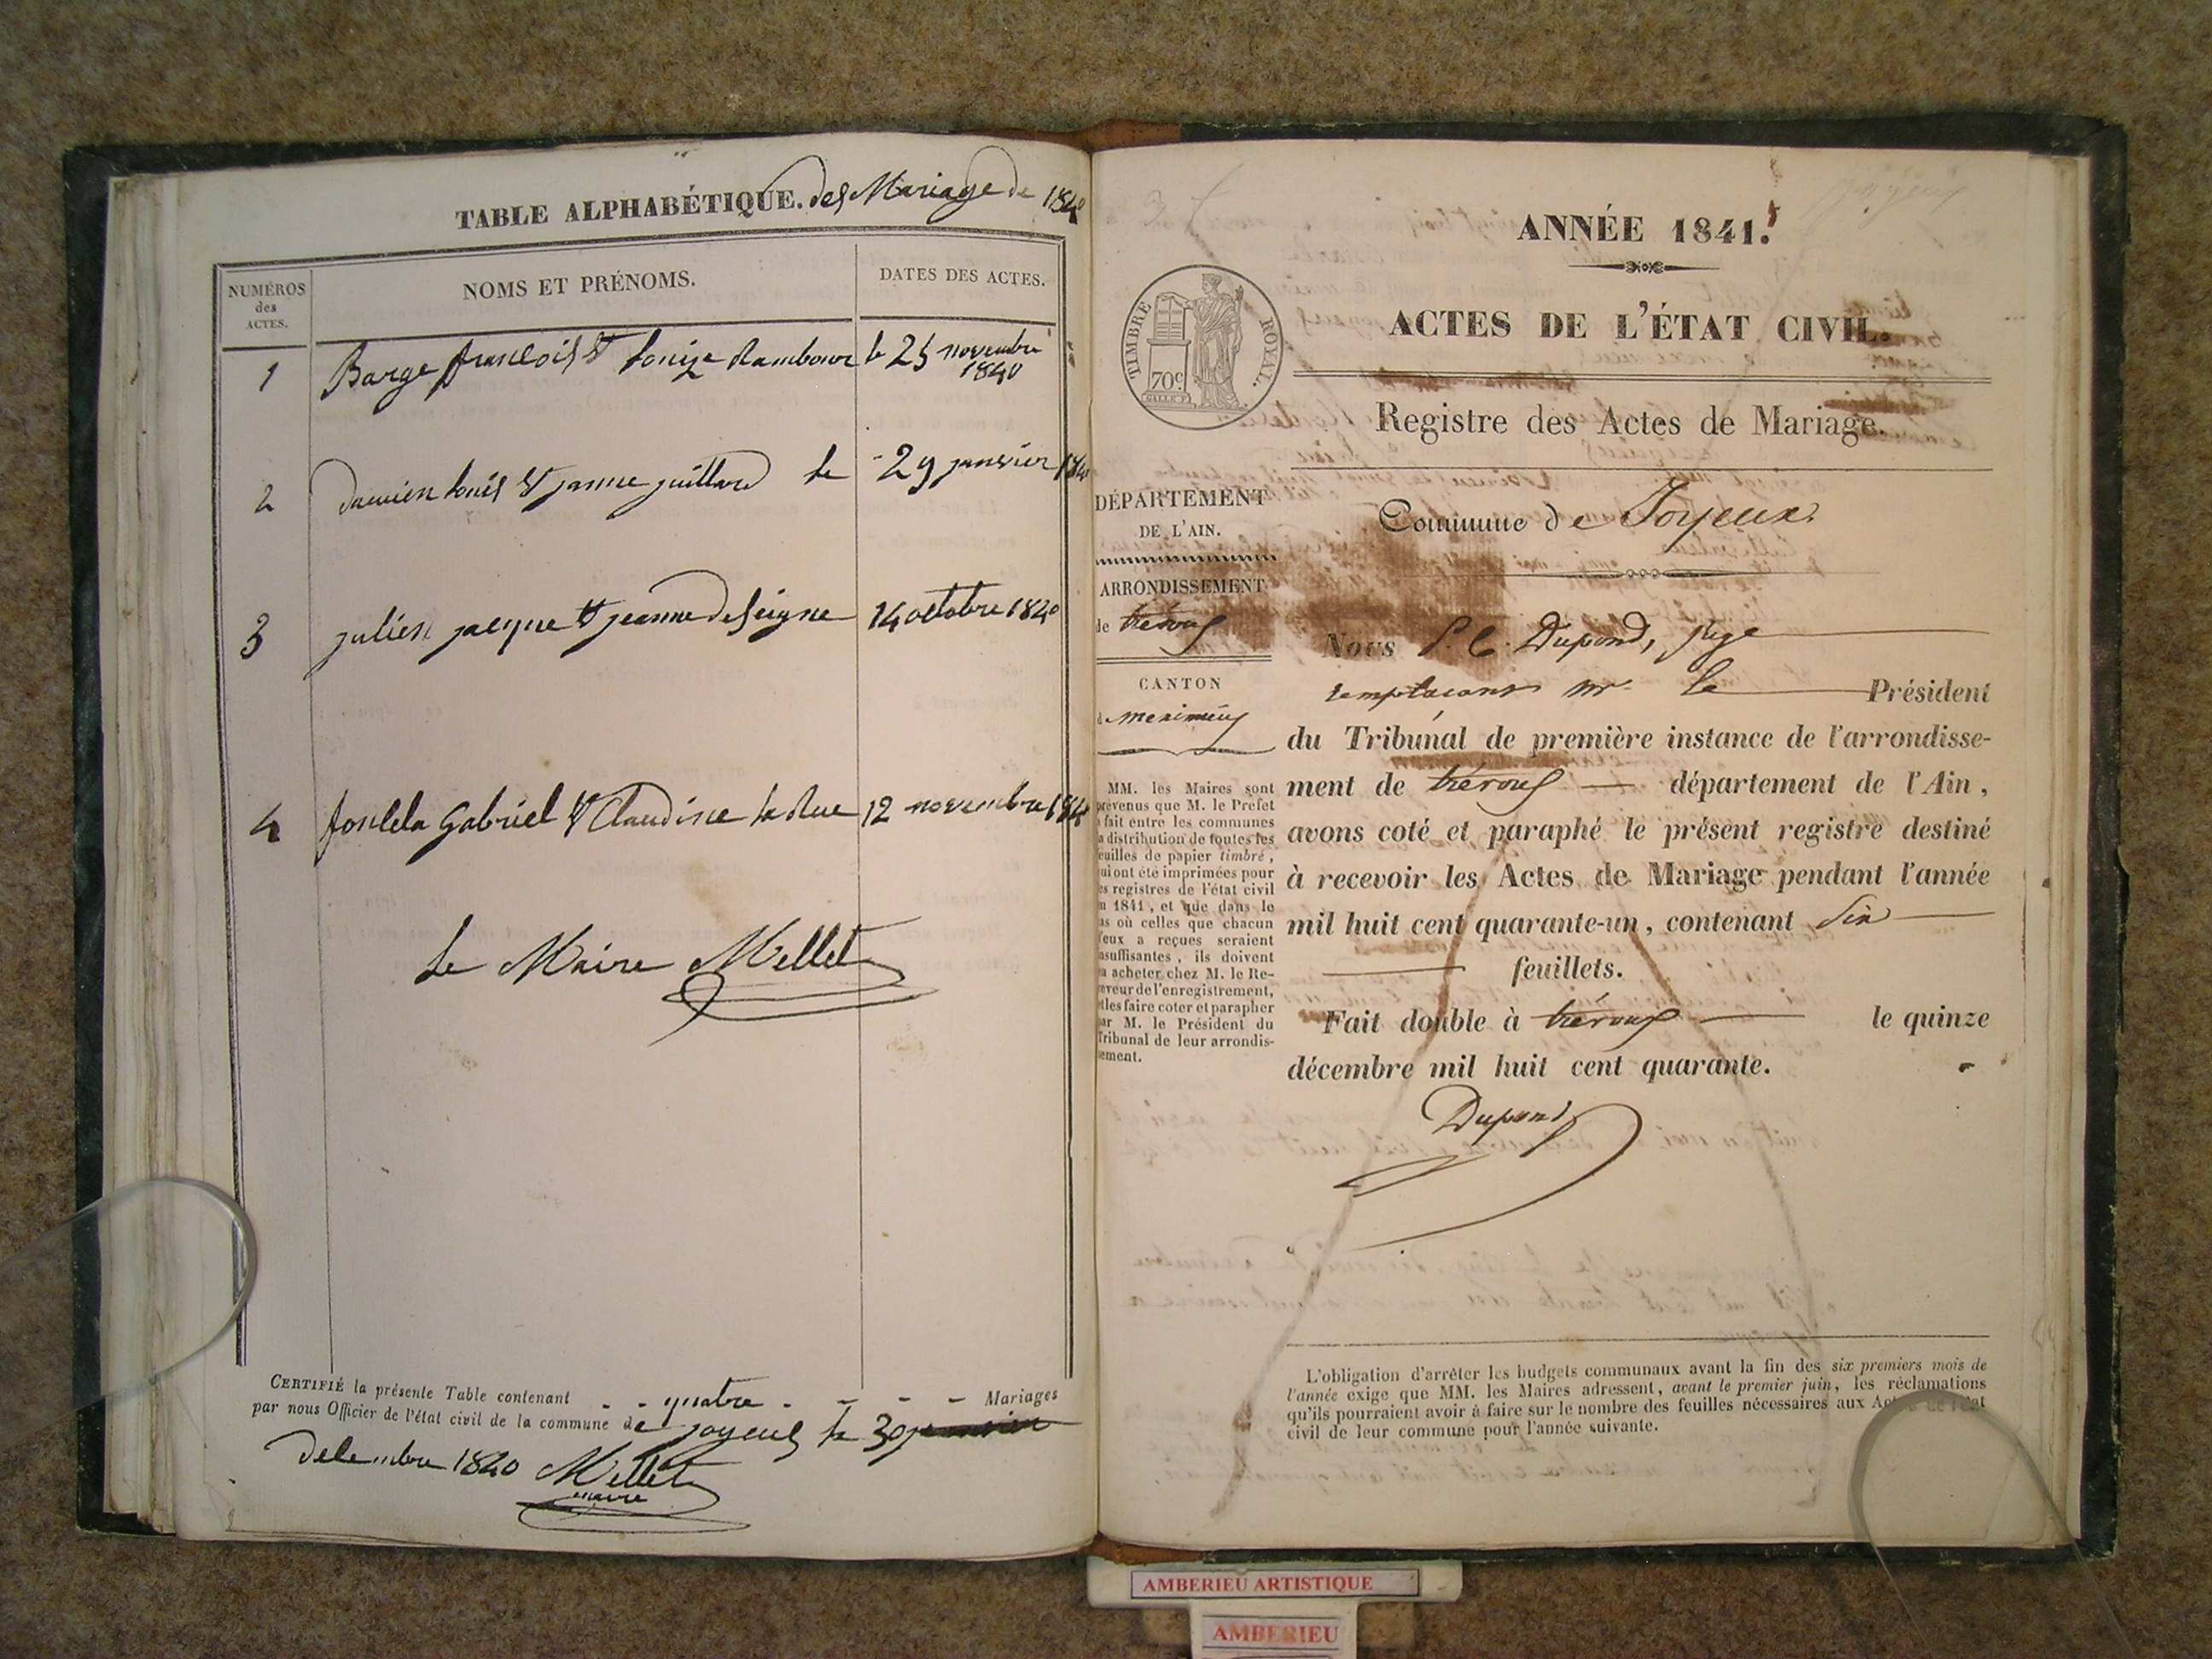 TABLE ALPHABÉTIQUE. des Mariage de 1840
NUMÉROS
des
ACTES.
NOMS ET PRÉNOMS.
DATES DES ACTES.
1 Barge francois et Louize Rambour le 25 novembre
1840
2 damien Louis et janne juillard le 29 janvier 1840
3 julien jacque et jeanne deseigne 14 octobre 1840
4 Gabriel et Claudine la Rue 12 novembre 1840
le Maire Mellet
CERTIFIÉ la présente Table contenant quatre Mariages
par nous Officier de l'état civil de la commune de joyeux le 30
decembre 1840 Mellet
maire
ANNÉE 1841.
ACTES DE L'ÉTAT CIVIL.
TIMBRE ROYAL.
70c
Registre des Actes de Mariage.
DÉPARTEMENT
DE L'AIN.
ARRONDISSEMENT
de trévoux
CANTON
de meximieux
MM. les Maires sont
prévenus que M. le Préfet
a fait entre les communes
la distribution de toutes les
feuilles de papier timbré,
qui ont été imprimées pour
les registres de l'état civil
en 1841, et que dans le
cas où celles que chacun
d'eux a reçues seraient
insuffisantes, ils doivent
en acheter chez M. le Re-
ceveur de l'enregistrement,
et les faire coter et parapher
par M. le Président du
Tribunal de leur arrondis-
sement.
Commune de Joyeux.
Nous P. C. Dupond, juge
remplaçant mr. le Président
du Tribunal de première instance de l'arrondisse-
ment de trévoux département de l'Ain,
avons coté et paraphé le présent registre destiné
à recevoir les Actes de Mariage pendant l'année
mil huit cent quarante-un, contenant six
feuillets.
Fait double à trévoux le quinze
décembre mil huit cent quarante.
Dupond
L'obligation d'arrêter les budgets communaux avant la fin des six premiers mois de
l'année exige que MM. les Maires adressent, avant le premier juin, les réclamations
qu'ils pourraient avoir à faire sur le nombre des feuilles nécessaires aux Actes de l'état
civil de leur commune pour l'année suivante.
AMBERIEU ARTISTIQUE
AMBERIEU